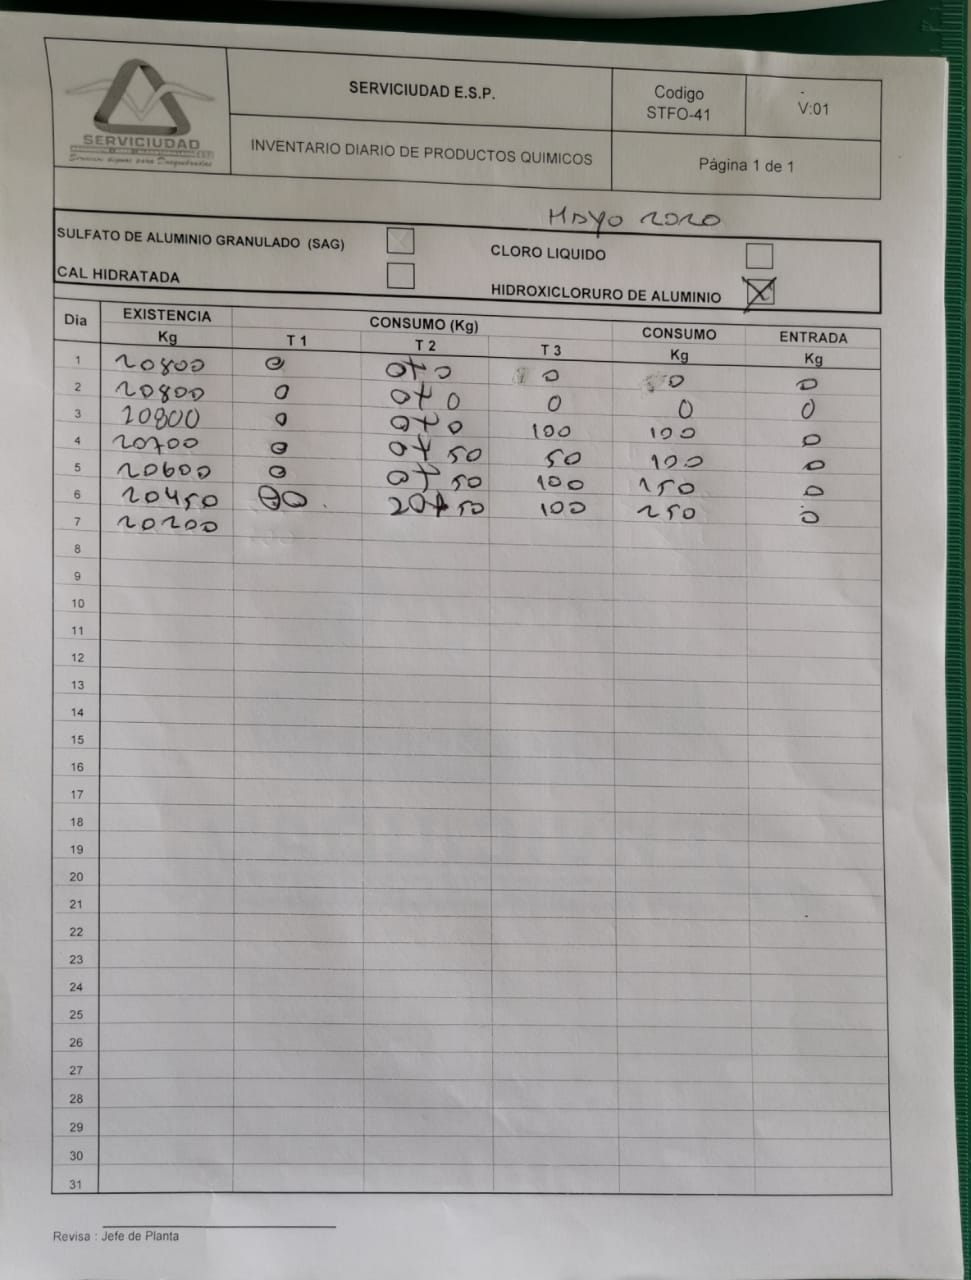 SERVICIUDAD
SERVICIUDAD E.S.P.
Codigo
STFO-41
V:01
INVENTARIO DIARIO DE PRODUCTOS QUIMICOS
Página 1 de 1
MAYO 2020
SULFATO DE ALUMINIO GRANULADO (SAG)
CLORO LIQUIDO
CAL HIDRATADA
HIDROXICLORURO DE ALUMINIO X
Dia EXISTENCIA Kg CONSUMO (Kg) T 1 T 2 T 3 CONSUMO Kg ENTRADA Kg
1 20800 0 0+0 0 0 0
2 20800 0 0+0 0 0 0
3 20800 0 0+0 100 100 0
4 20700 0 0+50 50 100 0
5 20600 0 0+50 100 150 0
6 20450 0 +50 100 250 0
7 20200
8
9
10
11
12
13
14
15
16
17
18
19
20
21
22
23
24
25
26
27
28
29
30
31
Revisa : Jefe de Planta